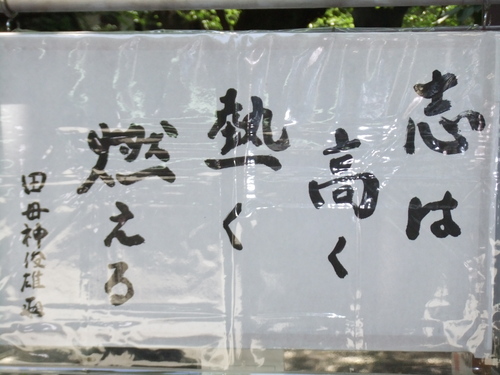 志は
高く
熱く
燃えろ
田母神俊雄